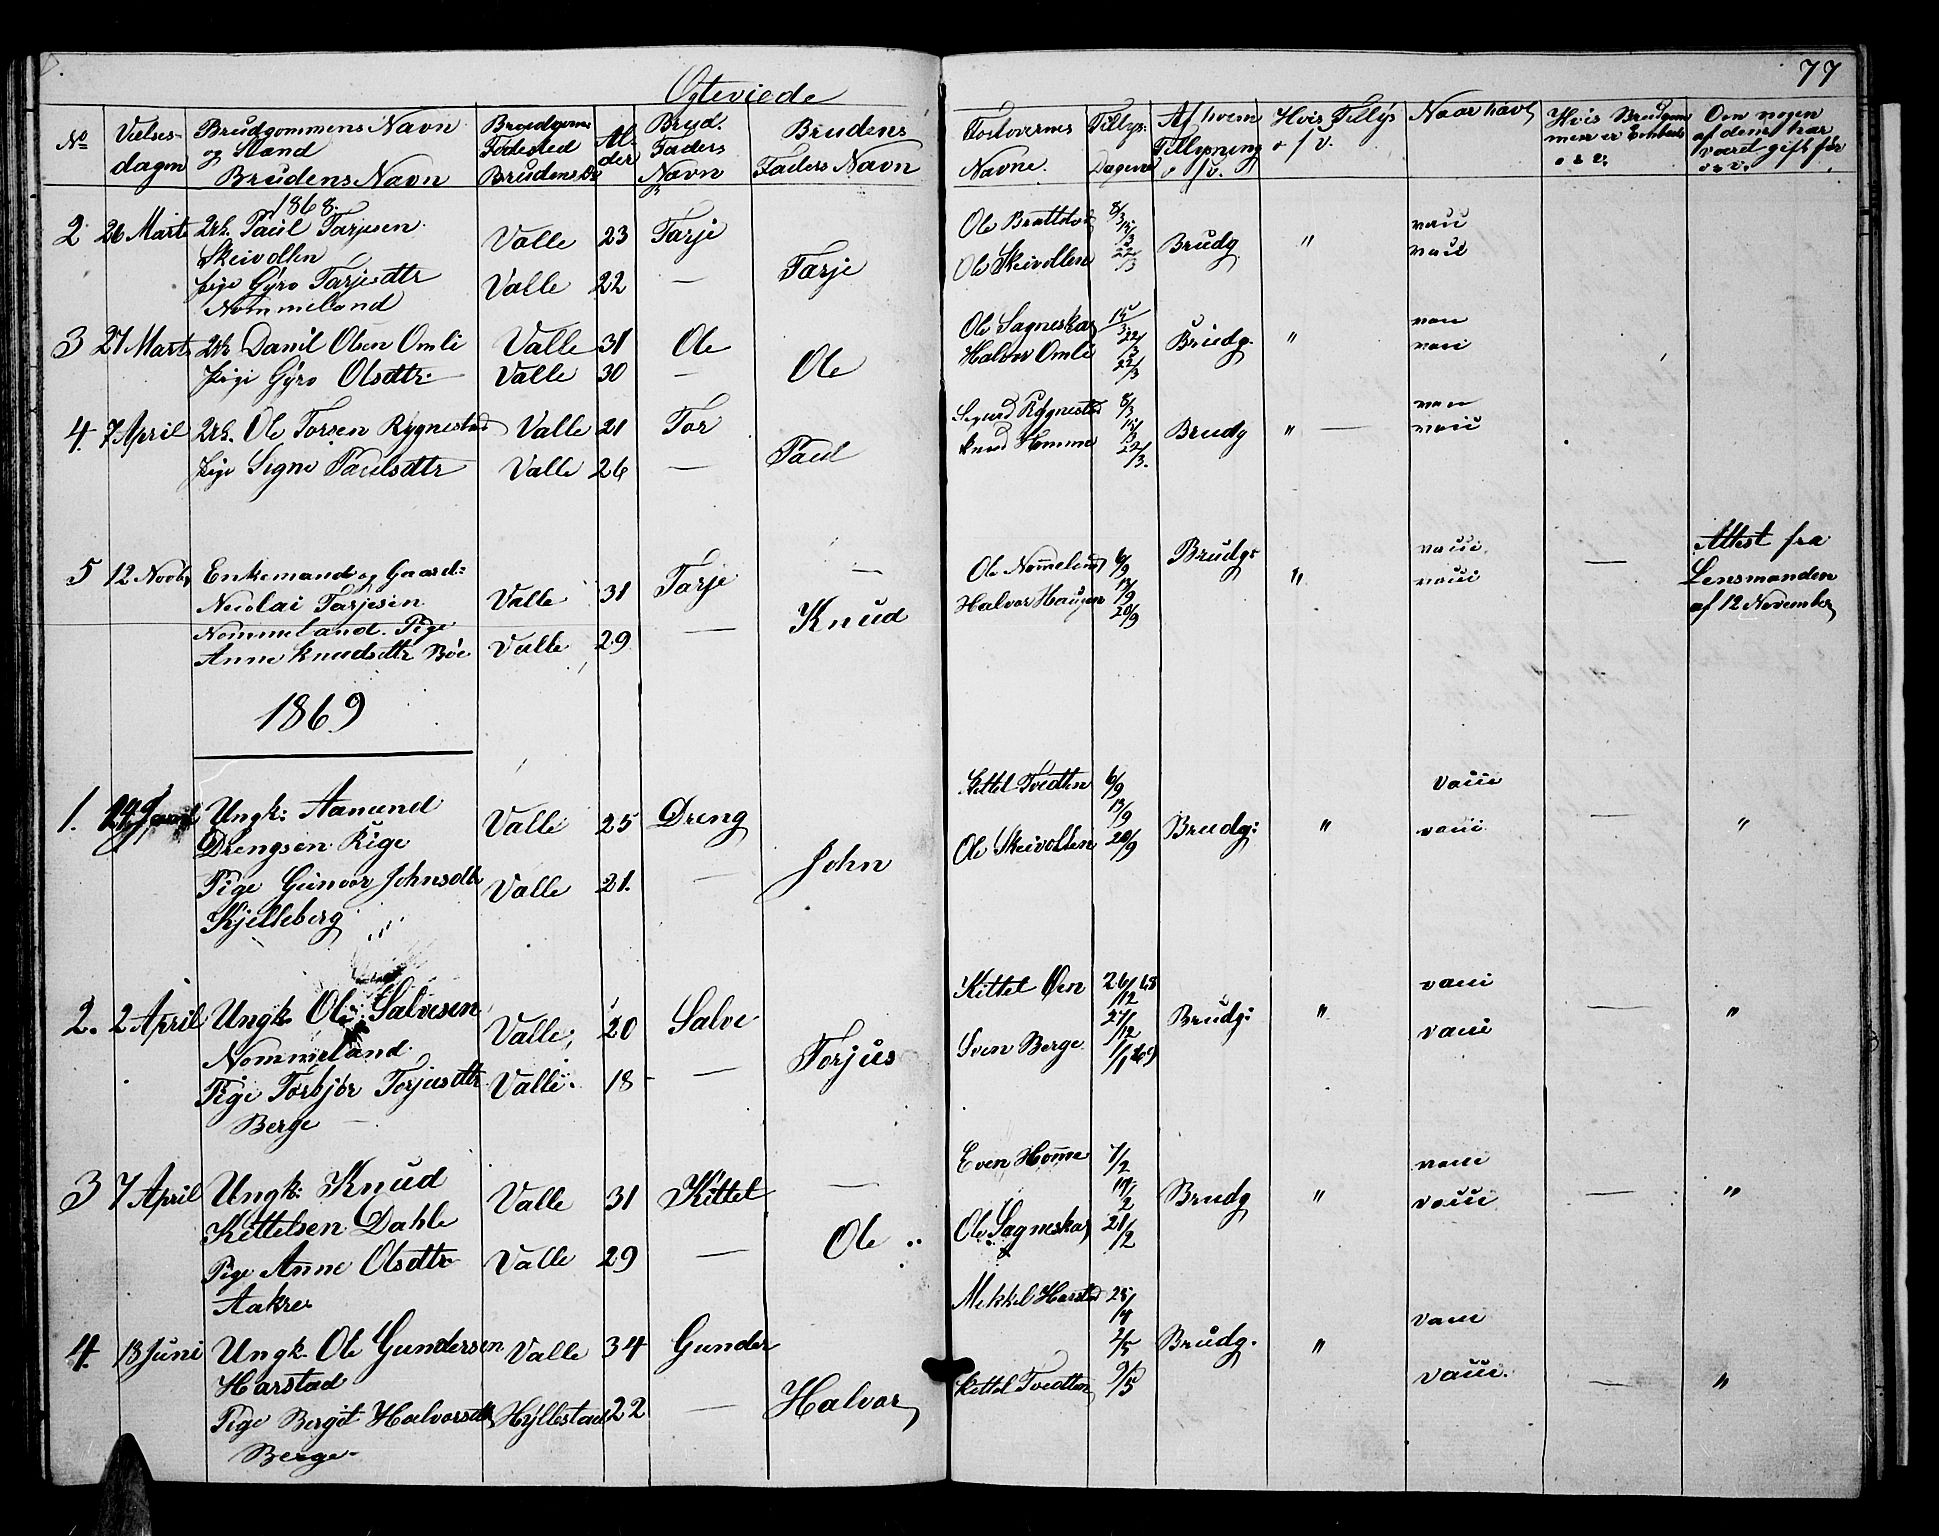 77
Ogteviede
No Vielses- Brudgommens Navn Brudgoms Al- Brud. Brudens Forlovernes Tillys: Af hvem Hvis Tillys Naar havt Hvis Brudgom Om nogen
dagen og Stand Fødested der Faders Faders Navn Navne. Dagene Tillysning o s v. mer er Enkem af dem har
Brudens Navn Brudens Do Navn o s v. o s v. været gift før
o s v.
1868.
2 26 Marts Paul Tarjesen Valle 23 Tarje Ole 8/3 15/3 vacci
Skeivollen Tarje Ole Skeivollen 22/3 Brudg " vacci
Pige Gyro Tarjesdtr Valle 22 —
Nommeland
3 27 Marts Danil Olsen Omli Valle 31 Ole Ole Sagneskar 15/3 Brudg. " vacci
Pige Gyro Olsdtr. Valle 30 — Ole Halvor Omli 22/3 22/3 vacci
4. 7 April Ole Torsen Rygnestad Valle 21 Tor Sigurd Rygnestad 8/3 15/3 Brudg " — vacci
Pige Signe Paulsdtr Valle 26 — Paul Knud Homme 22/3. vacci
5 12 Novbr Enkemand og Gaard: Valle 31 Tarje — Ole Nommeland 6/9 Brudg: " vacci — Attest fra
Nicolai Tarjesen Knud Halvor 13/9 20/9 vacci Lensmanden
Nommeland. Pige af 12 November
Anne Knudsdtr Bøe Valle 29 —
1869
1. Ungk: Aamund Valle 25 Dreng Kittel Tvedten 6/9 13/9 Brudg: " vacci — "
Drengsen Rige Ole Skeivollen 20/9 vacci
Pige Gunvor Johnsdtr Valle 21. — John
Kjelleberg
2. 2 April Ungk. Ole Salvesen Valle 20 Salve Kittel Øen 26/12 68 Brudg: " vacci — "
Nommeland Torjus Sven Berge 27/12 1/1 69 vacci
Pige Torbjør Torjusdtr Valle 18 —
Berge
3 7 April Ungk: Knud Valle 31 Kittel — Even Homme 7/2 Brudg " vacci — "
Kittelsen Dahle Ole Ole Sagneskar 14/2 21/2 vacci
Pige Anne Olsdtr Valle 29 —
Aakre
4. 13 Juni Ungk. Ole Gundersen Valle 34 Gunder Mikkel Harstad 25/4 Brudg. " vacci — "
Harstad Halvor Kittel Tvedten 2/5 9/5 vacci.
Pige Bergit Halvorsdtr Hyllestad 22 —
Berge